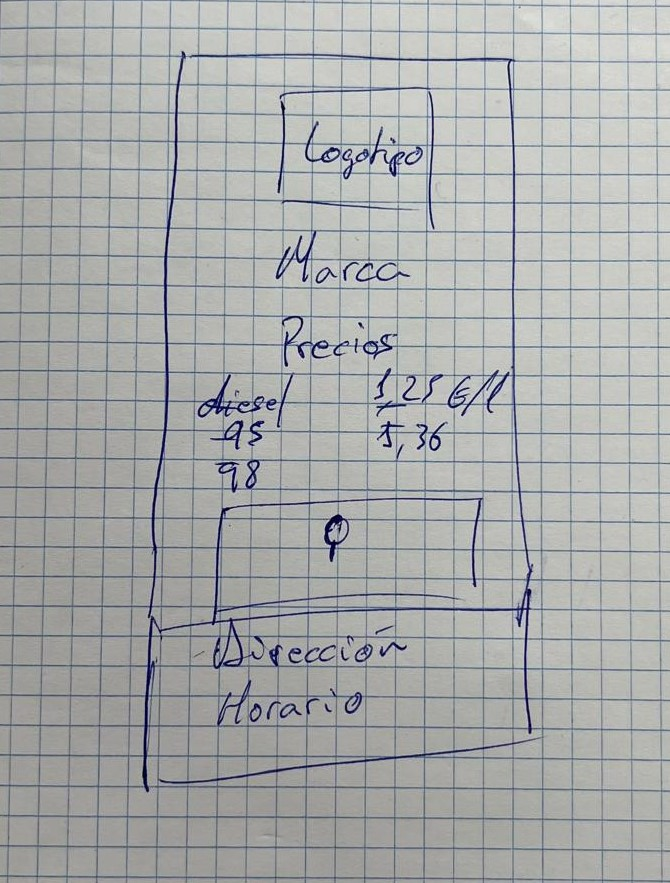 Logotipo
Marca
Precios
diesel 1,25 €/l
95 1,36
98
Dirección
Horario